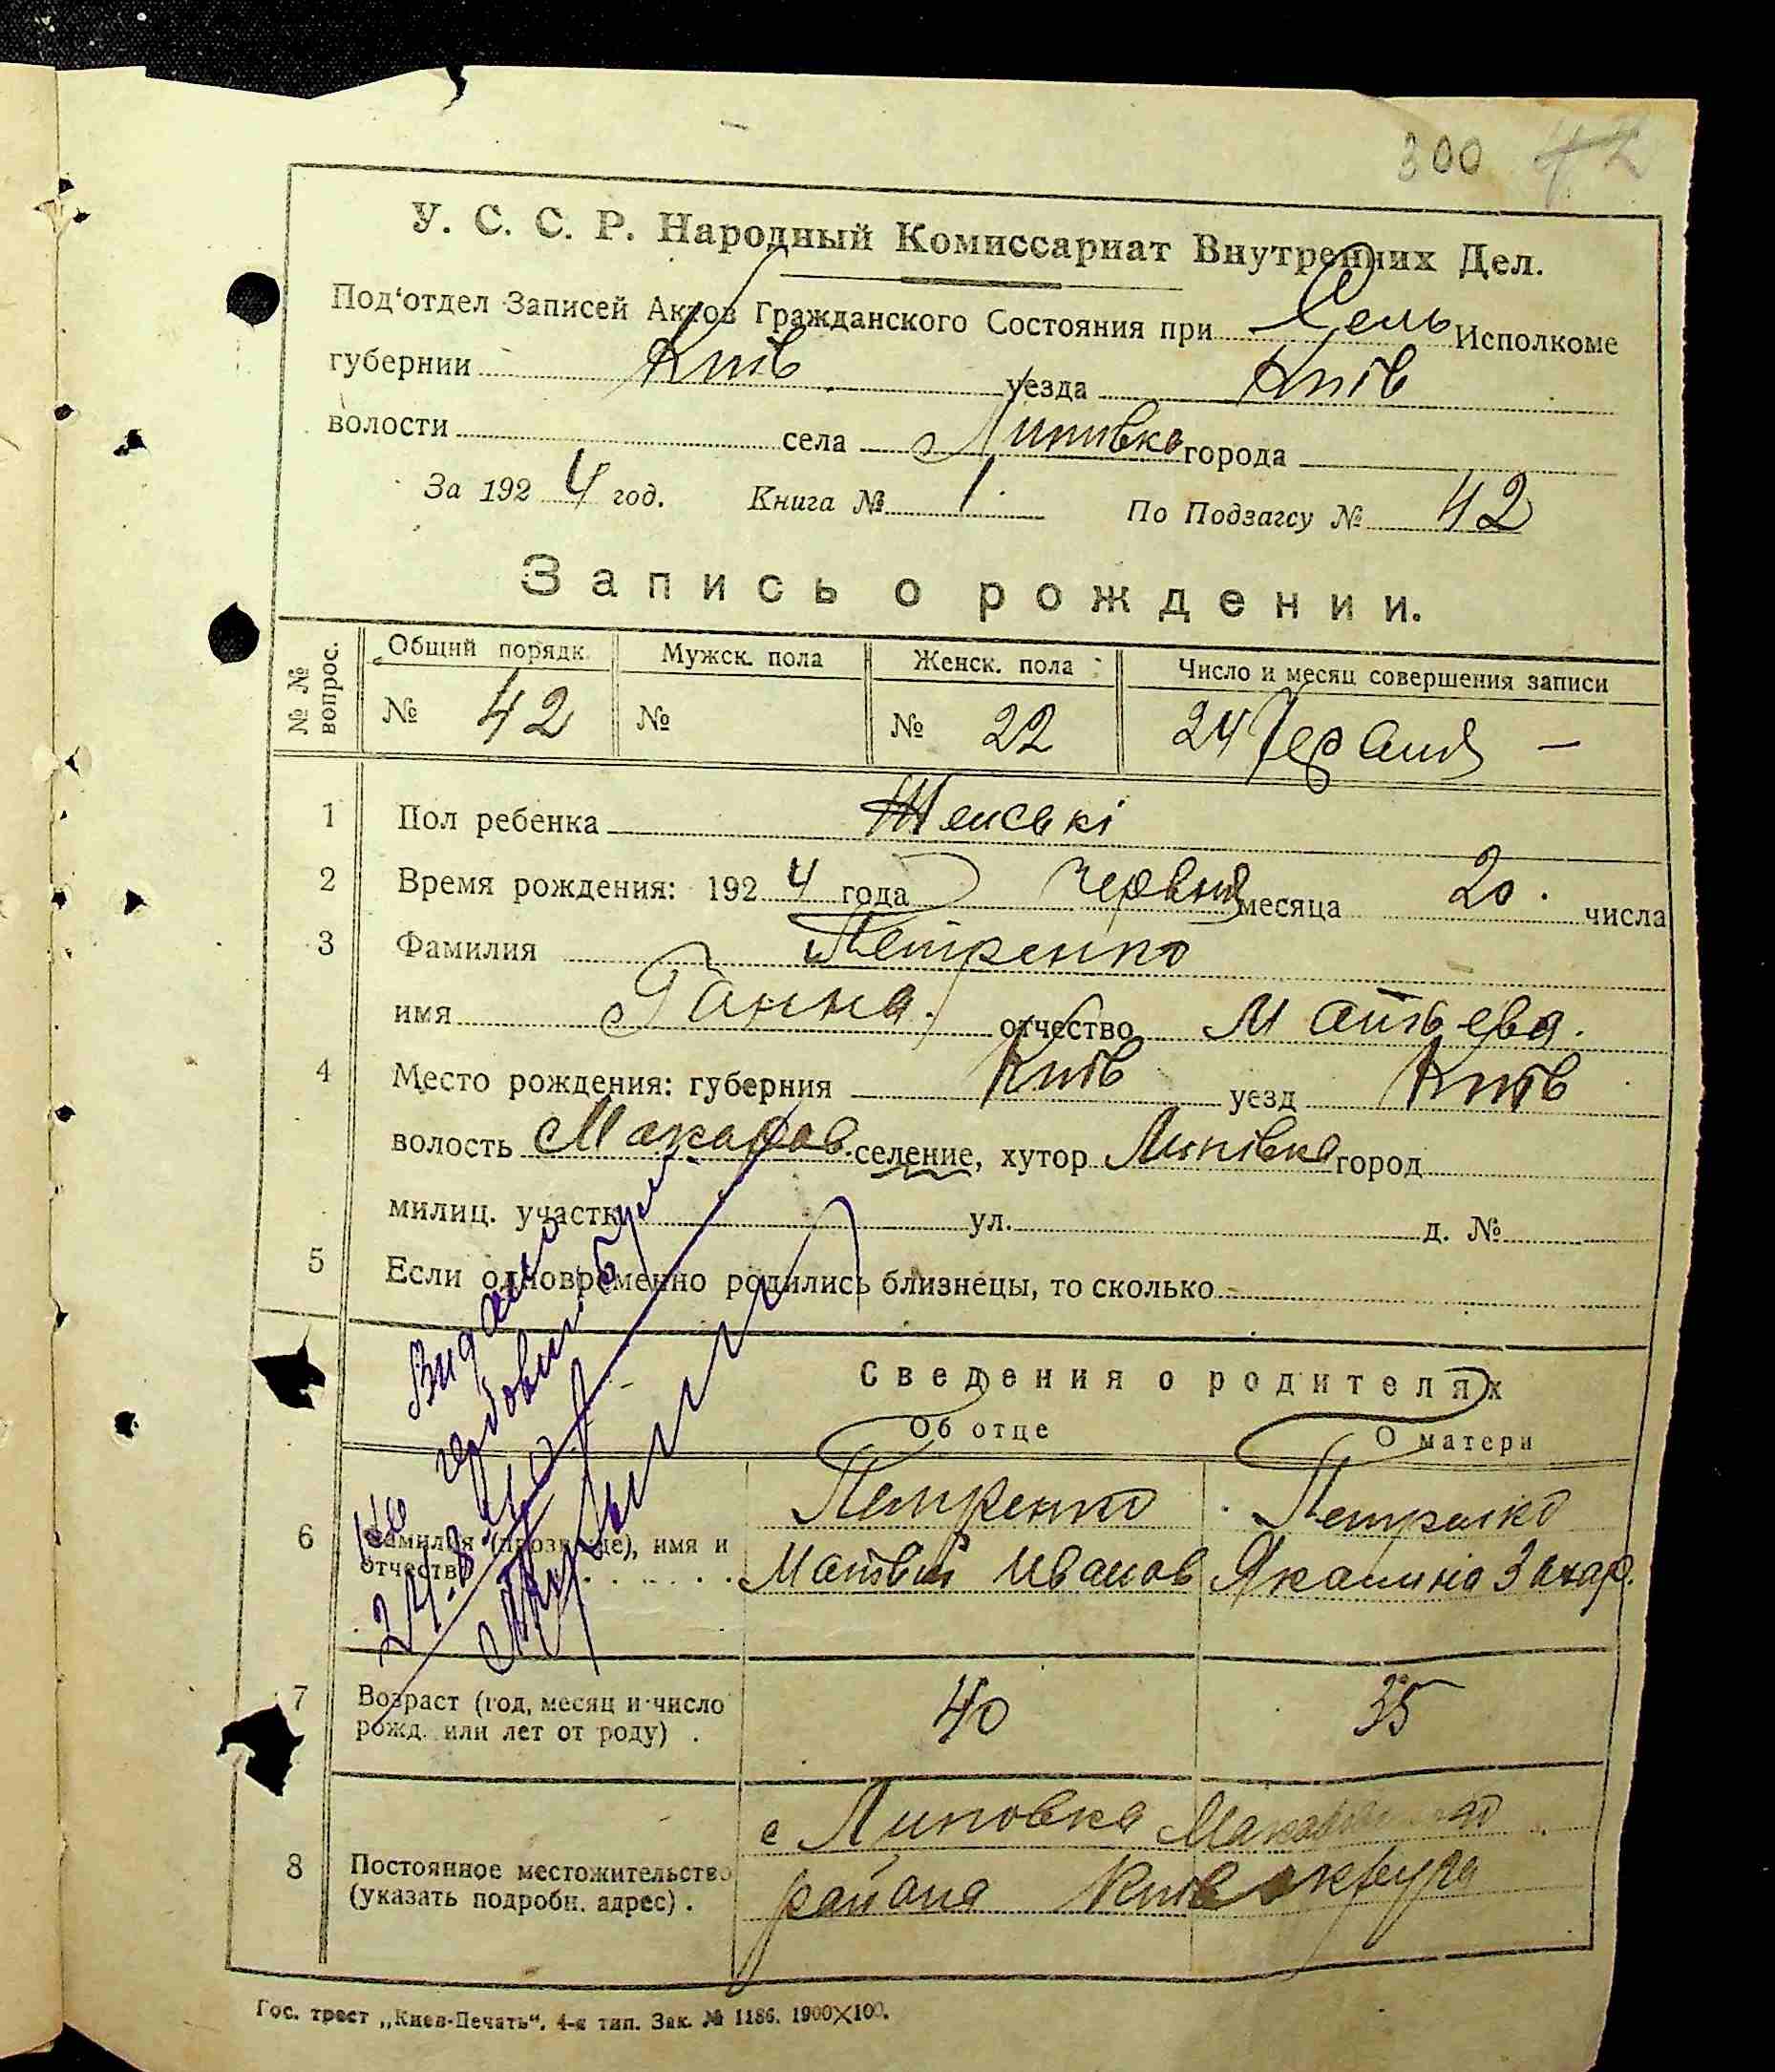 300 42
У. С. С. Р. Народный Комиссариат Внутренних Дел.
Под‘отдел Записей Актов Гражданского Состояния при Сель Исполкоме
губернии Київ уезда Київ
волости села Липивка города
За 1924 год. Книга № 1. По Подзагсу № 42
Запись о рождении.
№ № вопрос. Общий порядк. Мужск. пола Женск. пола Число и месяц совершения записи
№ 42 № № 22 24 Червня —
1 Пол ребенка Женські
2 Время рождения: 1924 года Червня месяца 20. числа
3 Фамилия Петренко
имя Ганна. отчество Матвева.
4 Место рождения: губерния Київ уезд Київ
волость Макаров. селение, хутор Липівка город
милиц. участк ул. д. №
5 Если одновременно родились близнецы, то сколько
Сведения о родителях
Об отце О матери
6 Фамилия (прозвище), имя и Петренко Петренко
отчество Матвій Иванов Якалина Захар.
7 Возраст (год, месяц и число 40 35
рожд. или лет от роду) .
с Липовка Макаровского
8 Постоянное местожительство района Київ округа
(указать подробн. адрес) .
Видано
24.8
Гос. трест „Киев-Печать“. 4-я тип. Зак. № 1186. 1900X100.